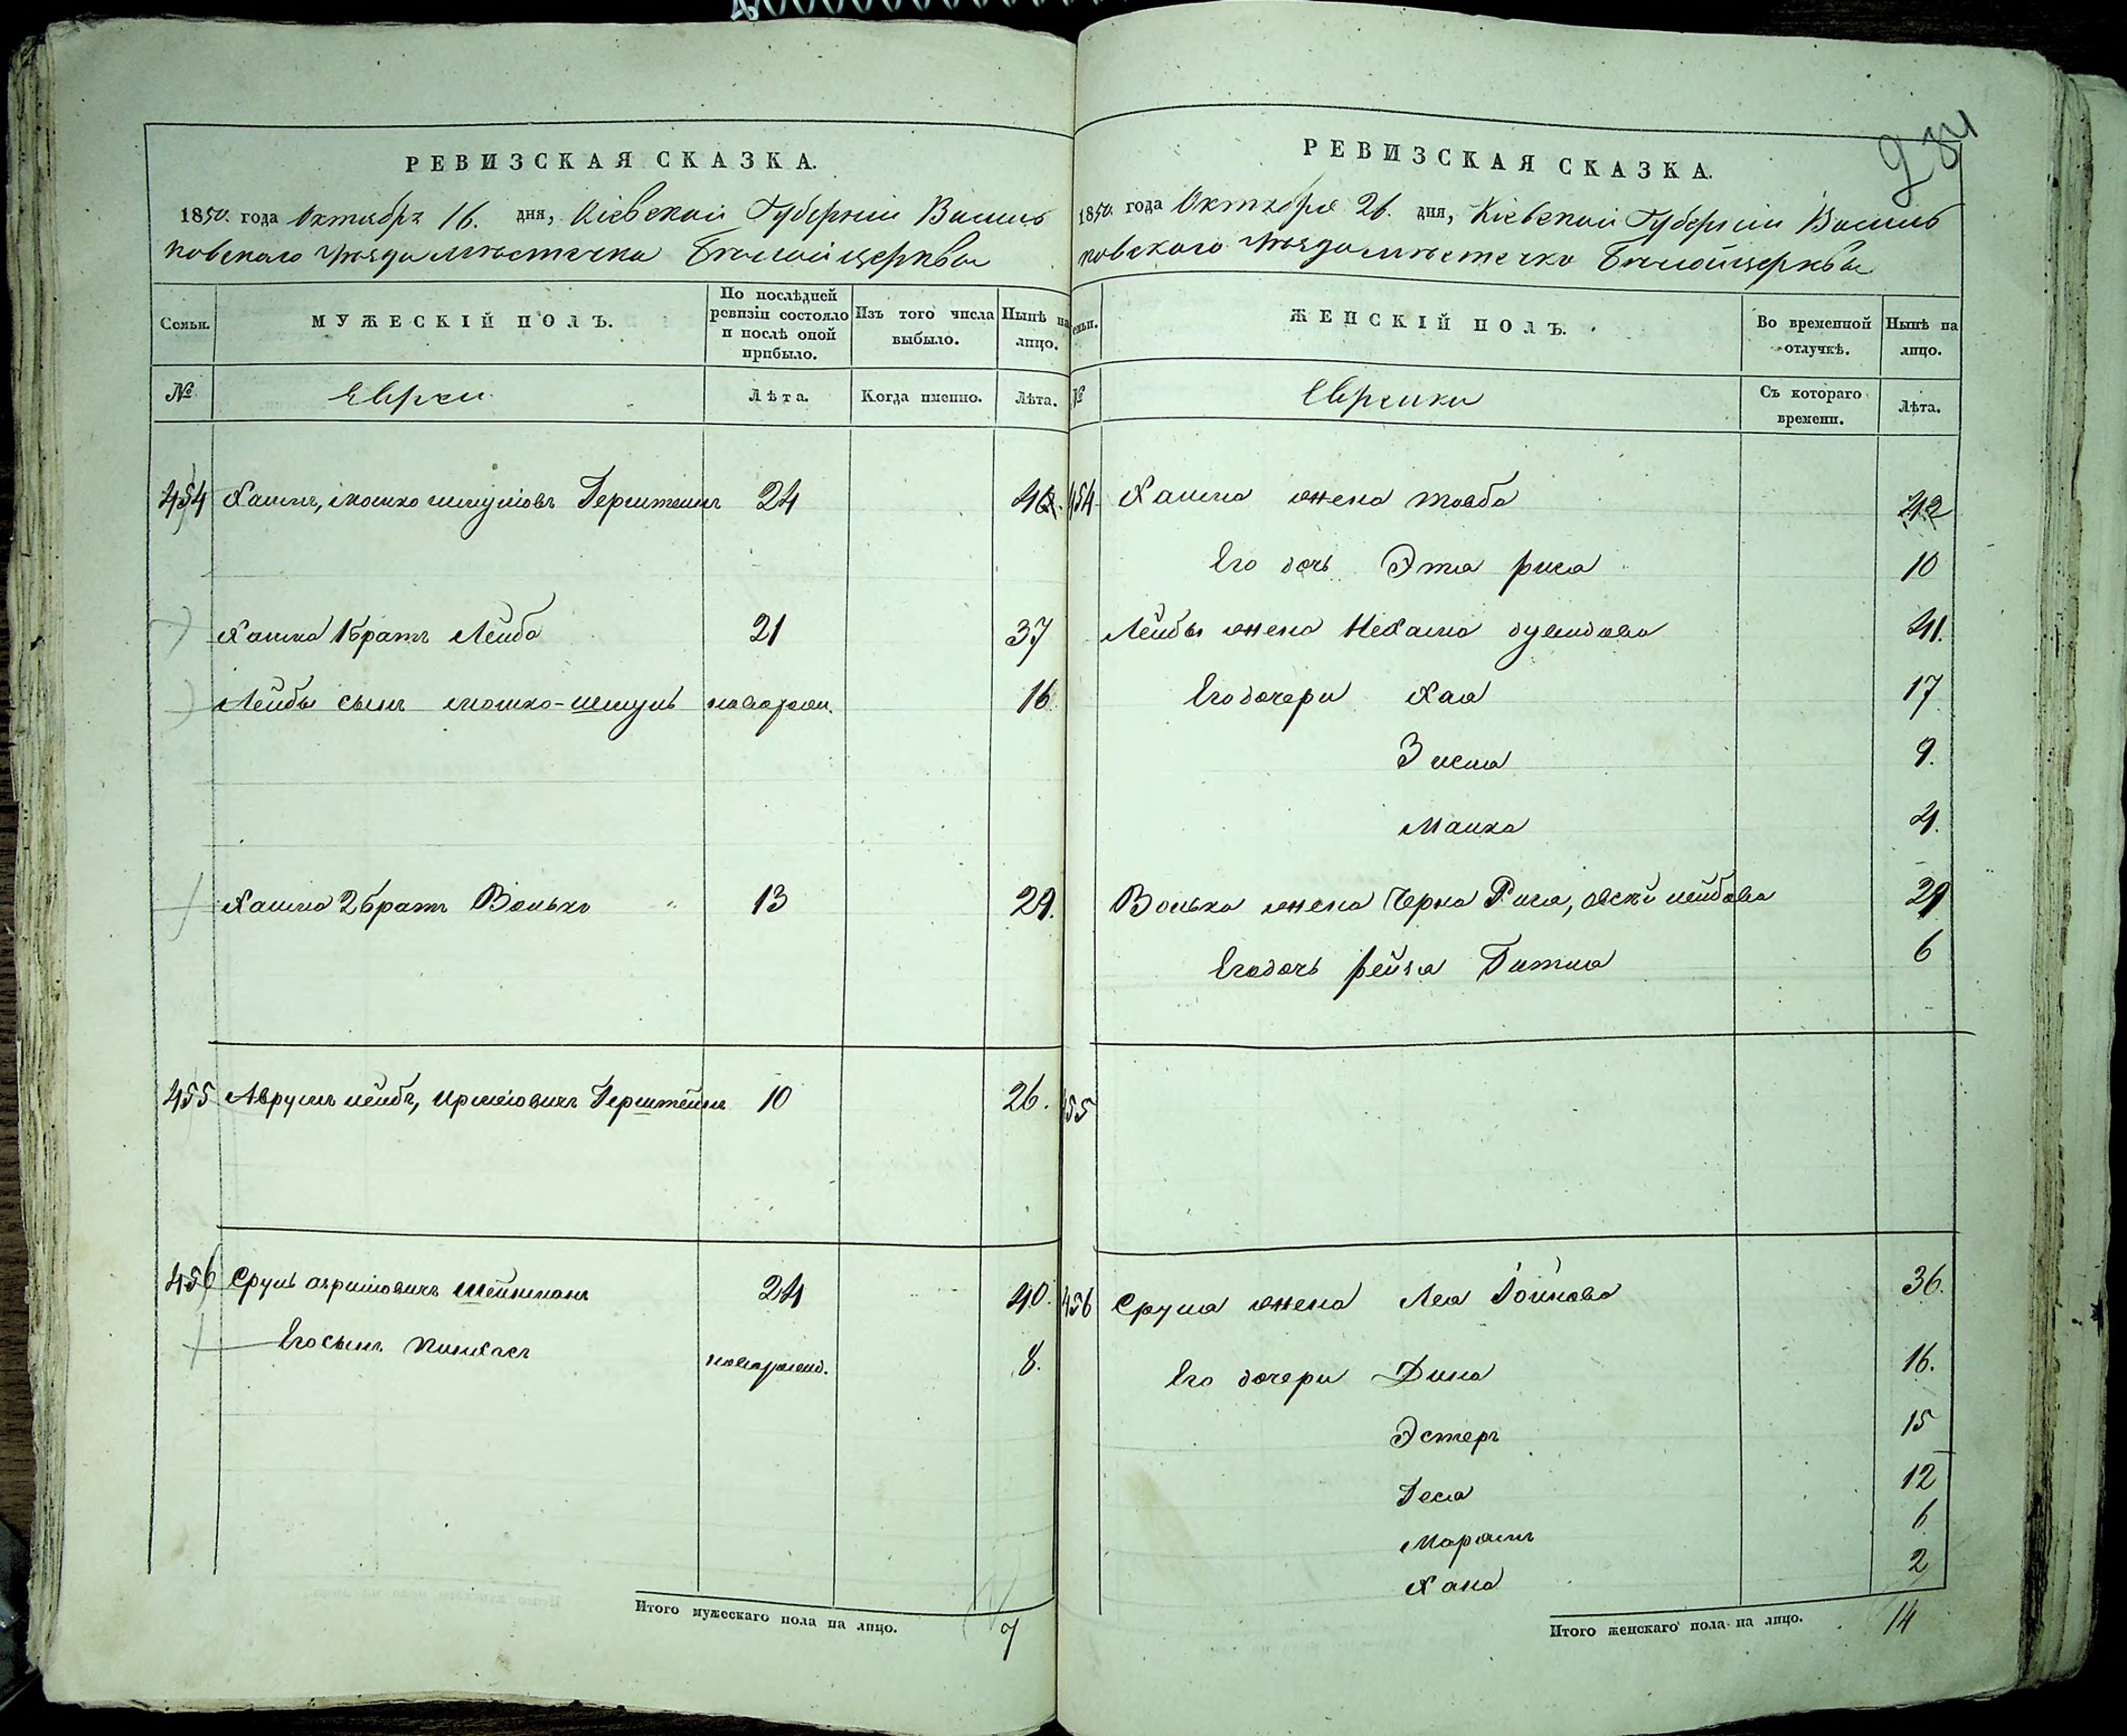 РЕВИЗСКАЯ СКАЗКА.
1850. года Октября 16. дня, Кіевской Губерніи Василь
ковскаго уѣзда мѣстечка Бѣлойцеркви
Семьи.
МУЖЕСКІЙ ПОЛЪ.
По послѣдней ревизіи состояло и послѣ оной прибыло.
Изъ того числа выбыло.
Нынѣ на лицо.
№
Евреи
Лѣта.
Когда именно.
Лѣта.
454 Хаимъ, мошко шмулiовъ Герштейнъ 24
Хаима 1 братъ Лейба 21 37
Лейбы сынъ мошко-шмуль новорожд. 16
Хаима 2 братъ Волько 13 29.
455 Аврумъ лейбъ, Герштейнъ 10 26.
456 Сруль Шейнманъ 24 40.
Его сынъ Пинхасъ новорожд. 8.
Итого мужескаго пола на лицо. 7
281
РЕВИЗСКАЯ СКАЗКА.
1850. года Октября 26. дня, Кіевской Губерніи Василь
ковскаго уѣзда мѣстечка Бѣлойцеркви
Семьи.
ЖЕНСКІЙ ПОЛЪ.
Во временной отлучкѣ.
Нынѣ на лицо.
№
Еврейки
Съ котораго времени.
Лѣта.
454 Хаима жена товба 42
Его дочь Этля риса 10
Лейбы жена Нехама 41.
Его дочери Хая 17
Зисля 9.
Малка 4.
Волька жена Черна Рися, лейбова 29
Его дочь рейза Гитля 6
455
456 Сруля жена Лея 36.
Его дочери Дина 16.
Эстеръ 15
Геся 12
Марьямъ 6
Хана 2
Итого женскаго пола на лицо. 14